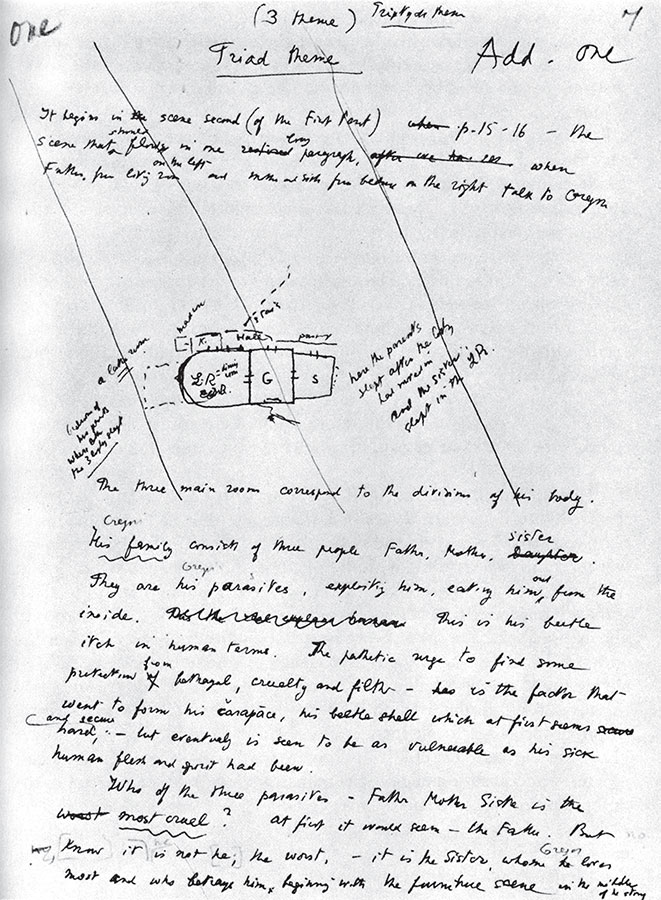 one
(3 theme) Triptych theme
7
Triad theme
Add. one
It begins in the scene second (of the First Part) when p.15-16 – the
scene that should in one long paragraph, when
Father, from living room on the left and mother and sister from bedroom on the right talk to Gregor
stairs
maid in
K. Hall
a bath room
LR living room
G
S
bedroom of his parents where all the 3 slept
here the parents
slept after the
had moved in
and the sister
slept in the L.R.
The three main room correspond to the divisions of his body.
Gregor
His family consists of three people Father, Mother, sister Daughter.
They are his Gregor's parasites, exploiting him, eating him out from the
inside. This is his beetle
itch in human terms. The pathetic urge to find some
protection from of betrayal, cruelty and filth – is the factor that
went to form his carapace, his beetle shell which at first seems
hard, and secure – but eventually is seen to be as vulnerable as his sick
human flesh and spirit had been.
Who of the three parasites – Father Mother Sister is the
worst most cruel? At first it would seem – the Father. But
no
know it is not he; the worst, – it is the Sister, whom Gregor he loves
most and who betrays him, beginning with the furniture scene in the middle
of the story